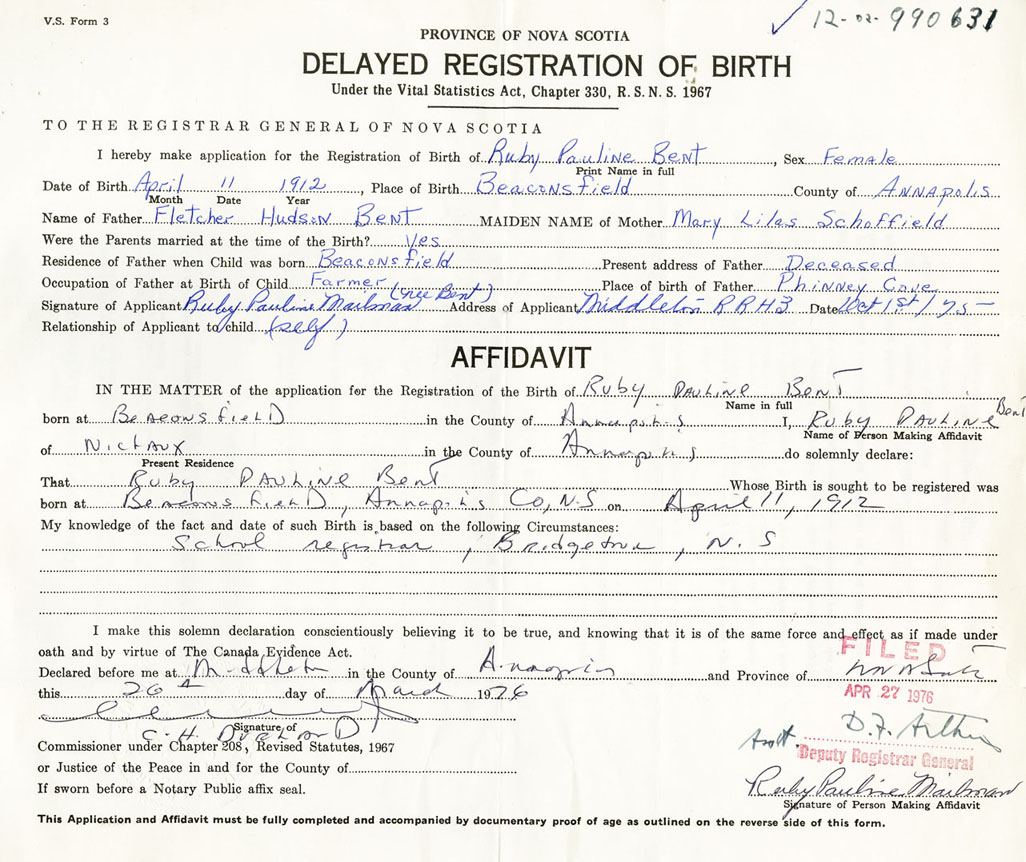 V.S. Form 3
✓ 12-02-990631
PROVINCE OF NOVA SCOTIA
DELAYED REGISTRATION OF BIRTH
Under the Vital Statistics Act, Chapter 330, R.S.N.S. 1967
TO THE REGISTRAR GENERAL OF NOVA SCOTIA
I hereby make application for the Registration of Birth of Ruby Pauline Bent, Sex Female
Print Name in full
Date of Birth April 11 1912, Place of Birth Beaconsfield County of Annapolis
Month Date Year
Name of Father Fletcher Hudson Bent MAIDEN NAME of Mother Mary Liles Schoffield
Were the Parents married at the time of the Birth? Yes
Residence of Father when Child was born Beaconsfield Present address of Father Deceased
Occupation of Father at Birth of Child Farmer Place of birth of Father Phinney Cove
(nee Bent)
Signature of Applicant Ruby Pauline Mailman Address of Applicant Middleton RR#3 Date Oct 1st/75
Relationship of Applicant to child (self)
AFFIDAVIT
IN THE MATTER of the application for the Registration of the Birth of Ruby Pauline Bent
Name in full
born at Beaconsfield in the County of Annapolis I, Ruby Pauline Bent
Name of Person Making Affidavit
of Nictaux in the County of Annapolis do solemnly declare:
Present Residence
That Ruby Pauline Bent Whose Birth is sought to be registered was
born at Beaconsfield, Annapolis Co, N.S on April 11, 1912
My knowledge of the fact and date of such Birth is based on the following Circumstances:
School registrar, Bridgetown, N.S
I make this solemn declaration conscientiously believing it to be true, and knowing that it is of the same force and effect as if made under
oath and by virtue of The Canada Evidence Act.
FILED
Declared before me at Middleton in the County of Annapolis and Province of
this 26th day of March 1976
APR 27 1976
Signature of
C. H. Durland
D.F. Arthur
Commissioner under Chapter 208, Revised Statutes, 1967
Asst. Deputy Registrar General
or Justice of the Peace in and for the County of
If sworn before a Notary Public affix seal.
Ruby Pauline Mailman
Signature of Person Making Affidavit
This Application and Affidavit must be fully completed and accompanied by documentary proof of age as outlined on the reverse side of this form.